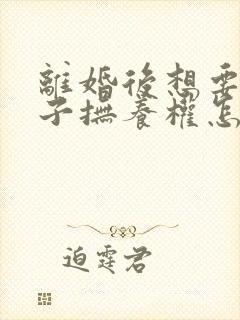 離婚後想要
子撫養權怎
迫霆君